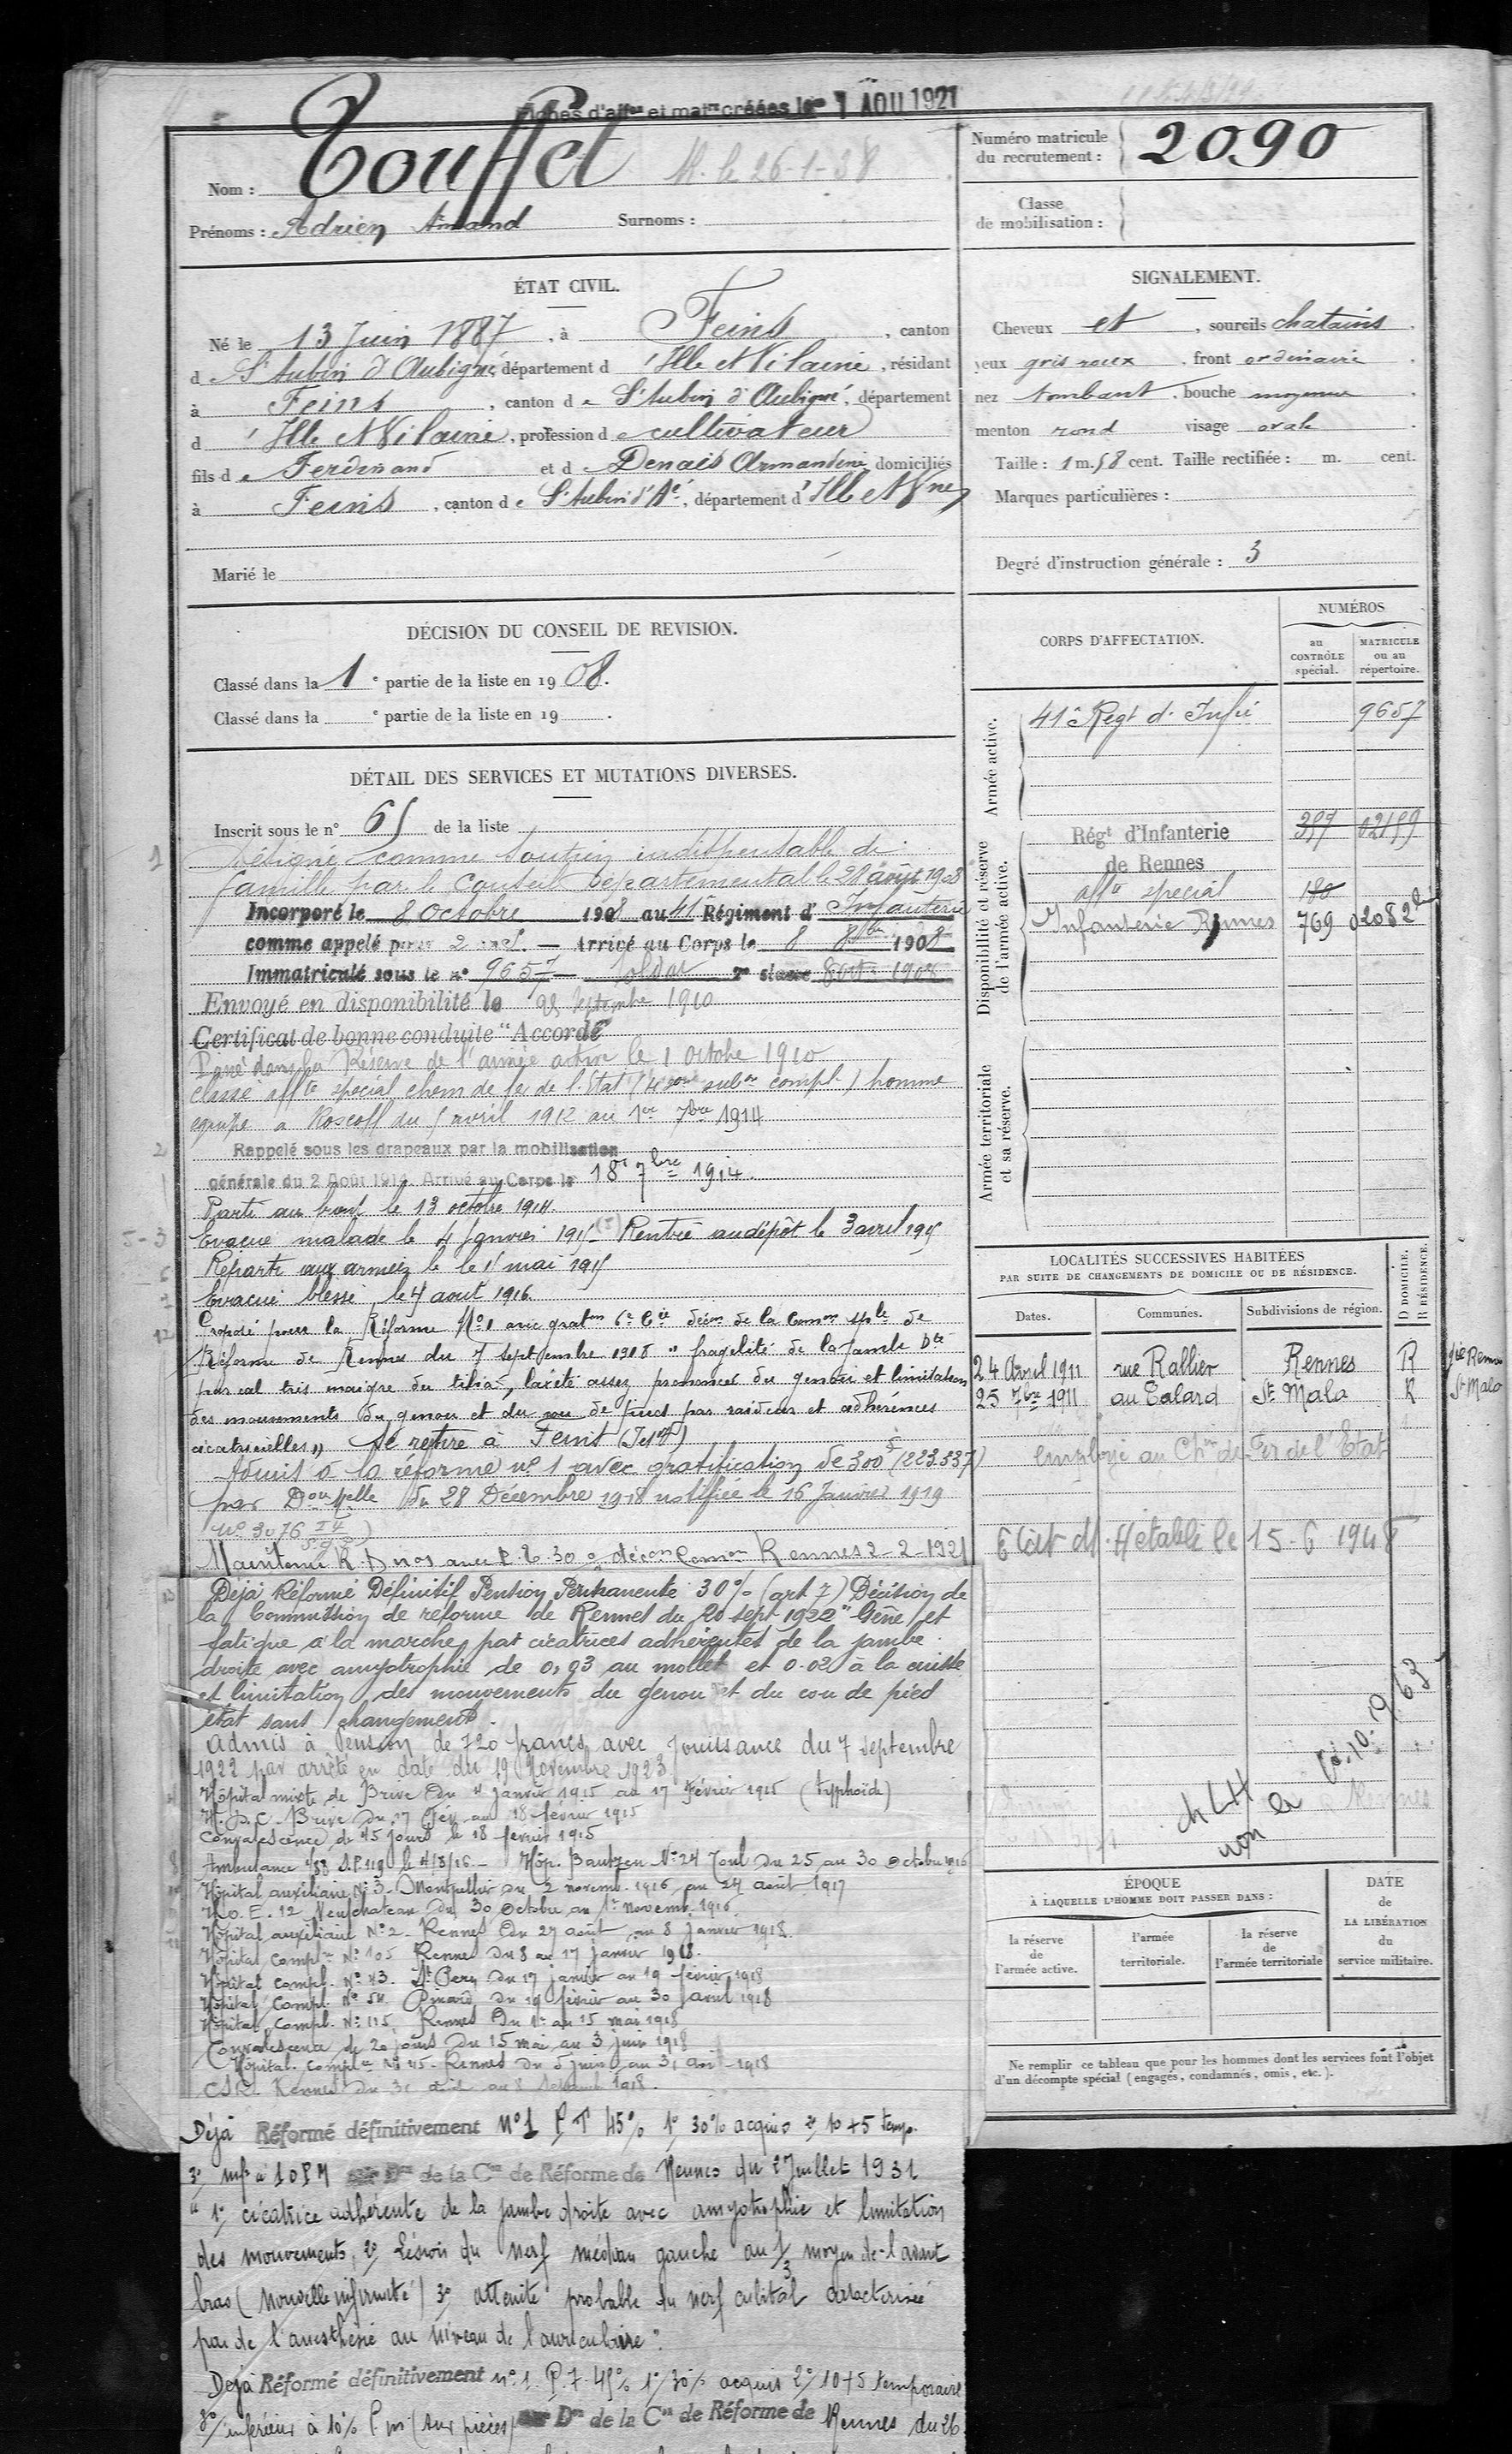 Fiches d'affon et matre créées le 1 AOU 1921
Nom : Touffet
M. le 26-1-38
Prénoms : Adrien Amand Surnoms :
Numéro matricule
du recrutement : 2090
Classe
de mobilisation :
ÉTAT CIVIL.
Né le 13 Juin 1887, à Feins, canton
d St Aubin d'Aubigné, département d'Ille et Vilaine, résidant
à Feins, canton de St Aubin d'Aubigné, département
d'Ille et Vilaine, profession de cultivateur
fils de Ferdinand et de Denais Armandine domiciliés
à Feins, canton de St Aubin d'Aé, département d'Ille et Vne
Marié le
SIGNALEMENT.
Cheveux et, sourcils chatains.
yeux gris roux. front ordinaire.
nez tombant. bouche moyenne.
menton rond visage ovale.
Taille : 1 m. 58 cent. Taille rectifiée : m. cent.
Marques particulières :
Degré d'instruction générale : 3
DÉCISION DU CONSEIL DE REVISION.
Classé dans la 1e partie de la liste en 1908.
Classé dans la e partie de la liste en 19 .
DÉTAIL DES SERVICES ET MUTATIONS DIVERSES.
Inscrit sous le n° 65 de la liste
Désigné comme soutien indispensable de
famille par le Conseil Départemental le 21 août 1908
Incorporé le 8 Octobre 1908 au 41e Régiment d'Infanterie
comme appelé — Arrivé au Corps le 8 8bre 1908
Immatriculé sous le n° 9657 — soldat 2e classe 8 oct. 1908
Envoyé en disponibilité le 25 septembre 1910
Certificat de bonne conduite "Accordé"
Passé dans la Réserve de l'armée active le 1 octobre 1910
classé affté spécial chem de fer de l'Etat (4e son subon compl.) homme
équipe à Roscoff du 5 avril 1912 au 1er 7bre 1914
Rappelé sous les drapeaux par la mobilisation
générale du 2 Août 1914. Arrivé au Corps le 18 7bre 1914.
Parti au front le 13 octobre 1914
Evacué malade le 4 Janvier 1915 Rentré au dépôt le 3 avril 1915
Reparti aux armées le 1 mai 1915
Evacué blessé le 4 août 1916
Proposé pour la Réforme No 1 avec graton 6e Cie décon de la Comon sple de
Réforme de Rennes du 7 septembre 1918 "fragilité de la jambe Dte
par cal très maigre du tibia, laxité assez prononcée du genou et limitation
des mouvements du genou et du cou de pied par raideur et adhérences
cicatricielles" Se retire à Feins (I et V)
Admis à la réforme n° 1 avec gratification de 300 f (223.337)
par Don Melle du 28 Décembre 1918 notifiée le 16 Janvier 1919
No 3076
Maintenu R. D no 1 avec P. T. 30 % décon Comon Rennes 2-2-1921
Déjà Réformé Définitif Pension Permanente 30% (art 7) Décision de
la Commission de réforme de Rennes du 20 sept 1922 "Gêne et
fatigue à la marche par cicatrices adhérentes de la jambe
droite avec amyotrophie de 0,03 au mollet et 0.02 à la cuisse
et limitation des mouvements du genou et du cou de pied
état sans changement.
Admis à Pension de 720 francs avec jouissance du 7 septembre
1922 par arrêté en date du 19 Novembre 1923
Hôpital mixte de Brive du 4 janvier 1915 au 17 Février 1915 (typhoïde)
H.D.C. Brive du 17 Fév au 18 février 1915
Convalescence de 45 jours le 18 février 1915
Ambulance 1/88 S.P. 119 le 4/8/16.— Hôp. Bautzen No 24 Toul du 25 au 30 Octobre 1916
Hôpital auxiliaire No 3 Montpellier du 2 novemb. 1916 au 27 août 1917
H.O.E. 12 Neufchateau du 30 Octobre au 1er novemb. 1916.
Hôpital auxiliaire No 2. Rennes du 27 août au 8 Janvier 1918.
Hôpital Complre No 105 Rennes du 8 au 17 janvier 1918.
Hôpital Compl. No 43. du 17 janvier au 19 février 1918
Hôpital Compl. No 54 Dinard du 19 février au 30 avril 1918
Hôpital Compl. No 115 Rennes Du 1er au 15 mai 1918
Convalescence de 20 jours du 15 mai au 3 juin 1918
Hôpital complre No 45. Rennes du 5 juin au 31 août 1918
C.S.R. Rennes du 31 août au 8 Septembre 1918.
Déjà Réformé définitivement No 1 P T 45% 1° 30% acquis 2° 10+5 temp.
3° inf à 10 P M Don de la Con de Réforme de Rennes du 2 Juillet 1931
"1° cicatrice adhérente de la jambe droite avec amyotrophie et limitation
des mouvements, 2° Lésion du nerf médian gauche au 1/3 moyen de l'avant
bras (Nouvelle infirmité) 3° atteinte probable du nerf cubital caractérisée
par de l'anesthésie au niveau de l'auriculaire".
Déjà Réformé définitivement n° 1. P.T. 45% 1°/30% acquis 2°/10+5 temporaire
3°/inférieur à 10% P m (sur pièces) Don de la Con de Réforme de Rennes du 26
CORPS D'AFFECTATION.
NUMÉROS
au CONTRÔLE spécial.
MATRICULE ou au répertoire.
Armée active.
41e Régt d'Infie 9657
Disponibilité et réserve de l'armée active.
Régt d'Infanterie 02199
de Rennes
affté spécial 180
Infanterie Rennes 769 02082 bis
Armée territoriale et sa réserve.
LOCALITÉS SUCCESSIVES HABITÉES
PAR SUITE DE CHANGEMENTS DE DOMICILE OU DE RÉSIDENCE.
D DOMICILE.
R RÉSIDENCE.
Dates. Communes. Subdivisions de région.
24 Avril 1911 rue Rallier Rennes R gie Rennes
25 7bre 1911 au Talard St Malo R St Malo
employé au Chin de Fer de l'Etat
Etat établi le 15-6 1948
non
ÉPOQUE
À LAQUELLE L'HOMME DOIT PASSER DANS :
la réserve de l'armée active.
l'armée territoriale.
la réserve de l'armée territoriale
DATE de LA LIBÉRATION du service militaire.
Ne remplir ce tableau que pour les hommes dont les services font l'objet
d'un décompte spécial (engagés, condamnés, omis, etc.).